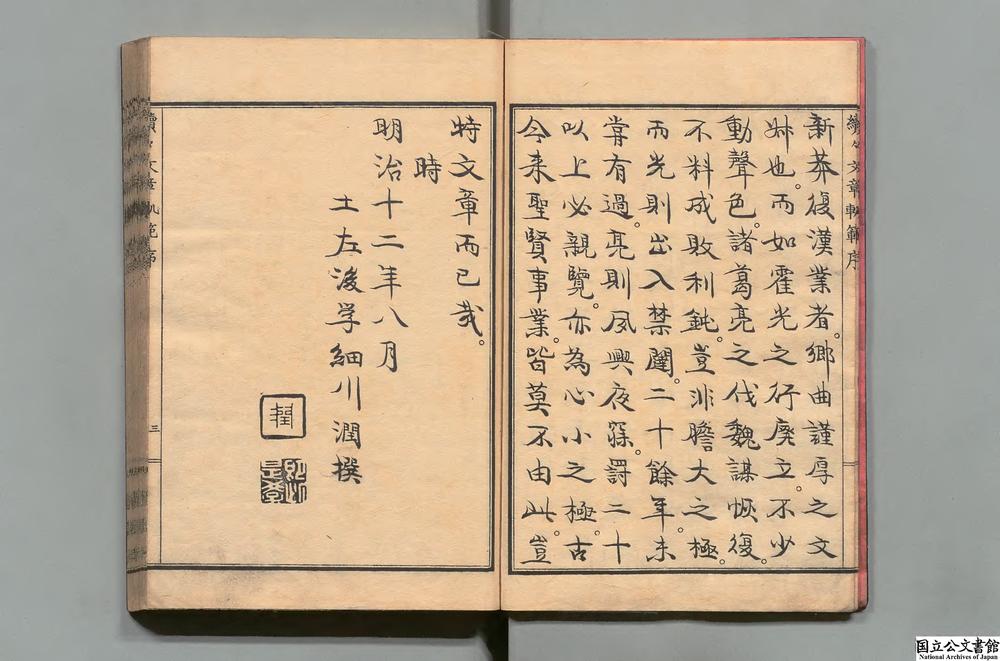 續々文章軌範序
新莽復漢業者。鄉曲謹厚之文
叔也。而如霍光之行廢立。不少
動聲色。諸葛亮之伐魏謀恢復。
不料成敗利鈍。豈非膽大之極。
而光則出入禁闥。二十餘年。未
甞有過。亮則夙興夜寐。罸二十
以上必親覽。亦為心小之極。古
今来聖賢事業。皆莫不由此。豈
特文章而已哉。
時
明治十二年八月
土左後学細川潤撰
續々文章軌範序
三
国立公文書館
National Archives of Japan